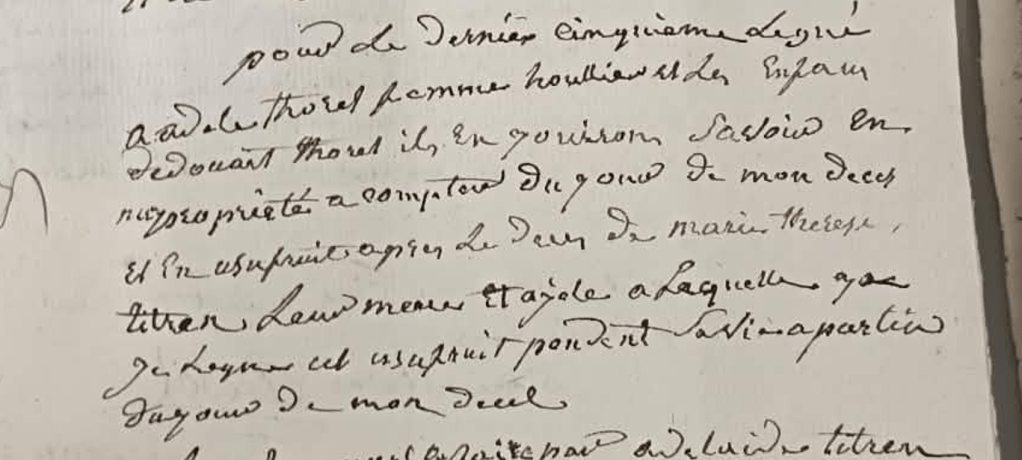 pour Le dernier cinquieme Legué
a adele thorel femme houllier et Les Enfans
dedouart thorel ils En jouirons Savoir En
nuepropriété a compter du jour de mon deces
Et En usufruit apres Le deces de marie therese
titren Leur mere Et ayole a Laquelle
je Legue cet usufruit pendent Savie a partir
du jour de mon decel
par adelaide titren